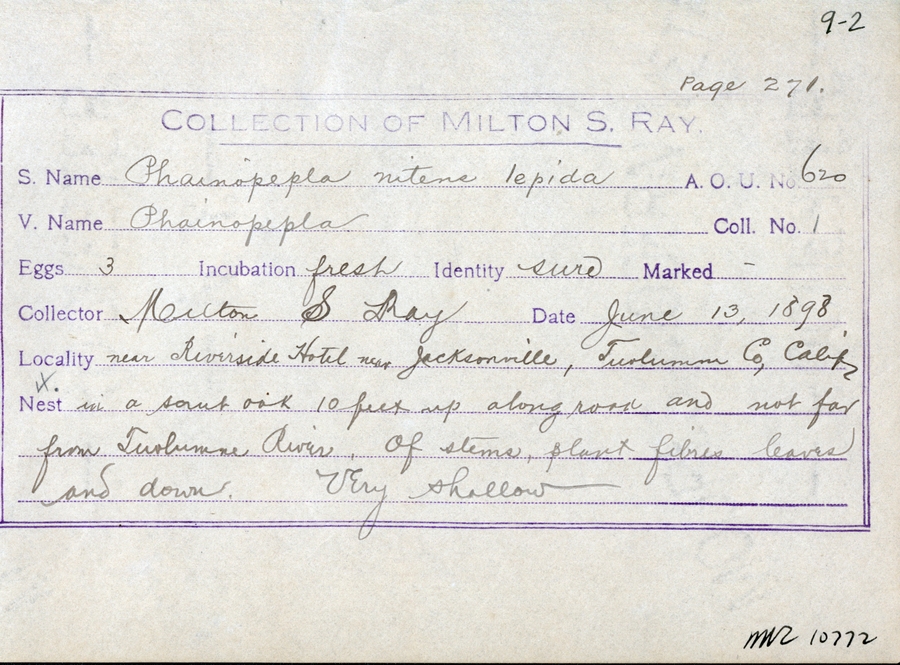 9-2
Page 271.
COLLECTION OF MILTON S. RAY.
S. Name Phainopepla nitens lepida A. O. U. No. 620
V. Name Phainopepla Coll. No. 1
Eggs 3 Incubation fresh Identity sure Marked -
Collector Milton S Ray Date June 13, 1898
Locality near Riverside Hotel near Jacksonville, Tuolumne Co, Calif
Nest in a scrub oak 10 feet up along road and not far
from Tuolumne River. Of stems, plant fibres leaves
and down. Very shallow
MVZ 10772